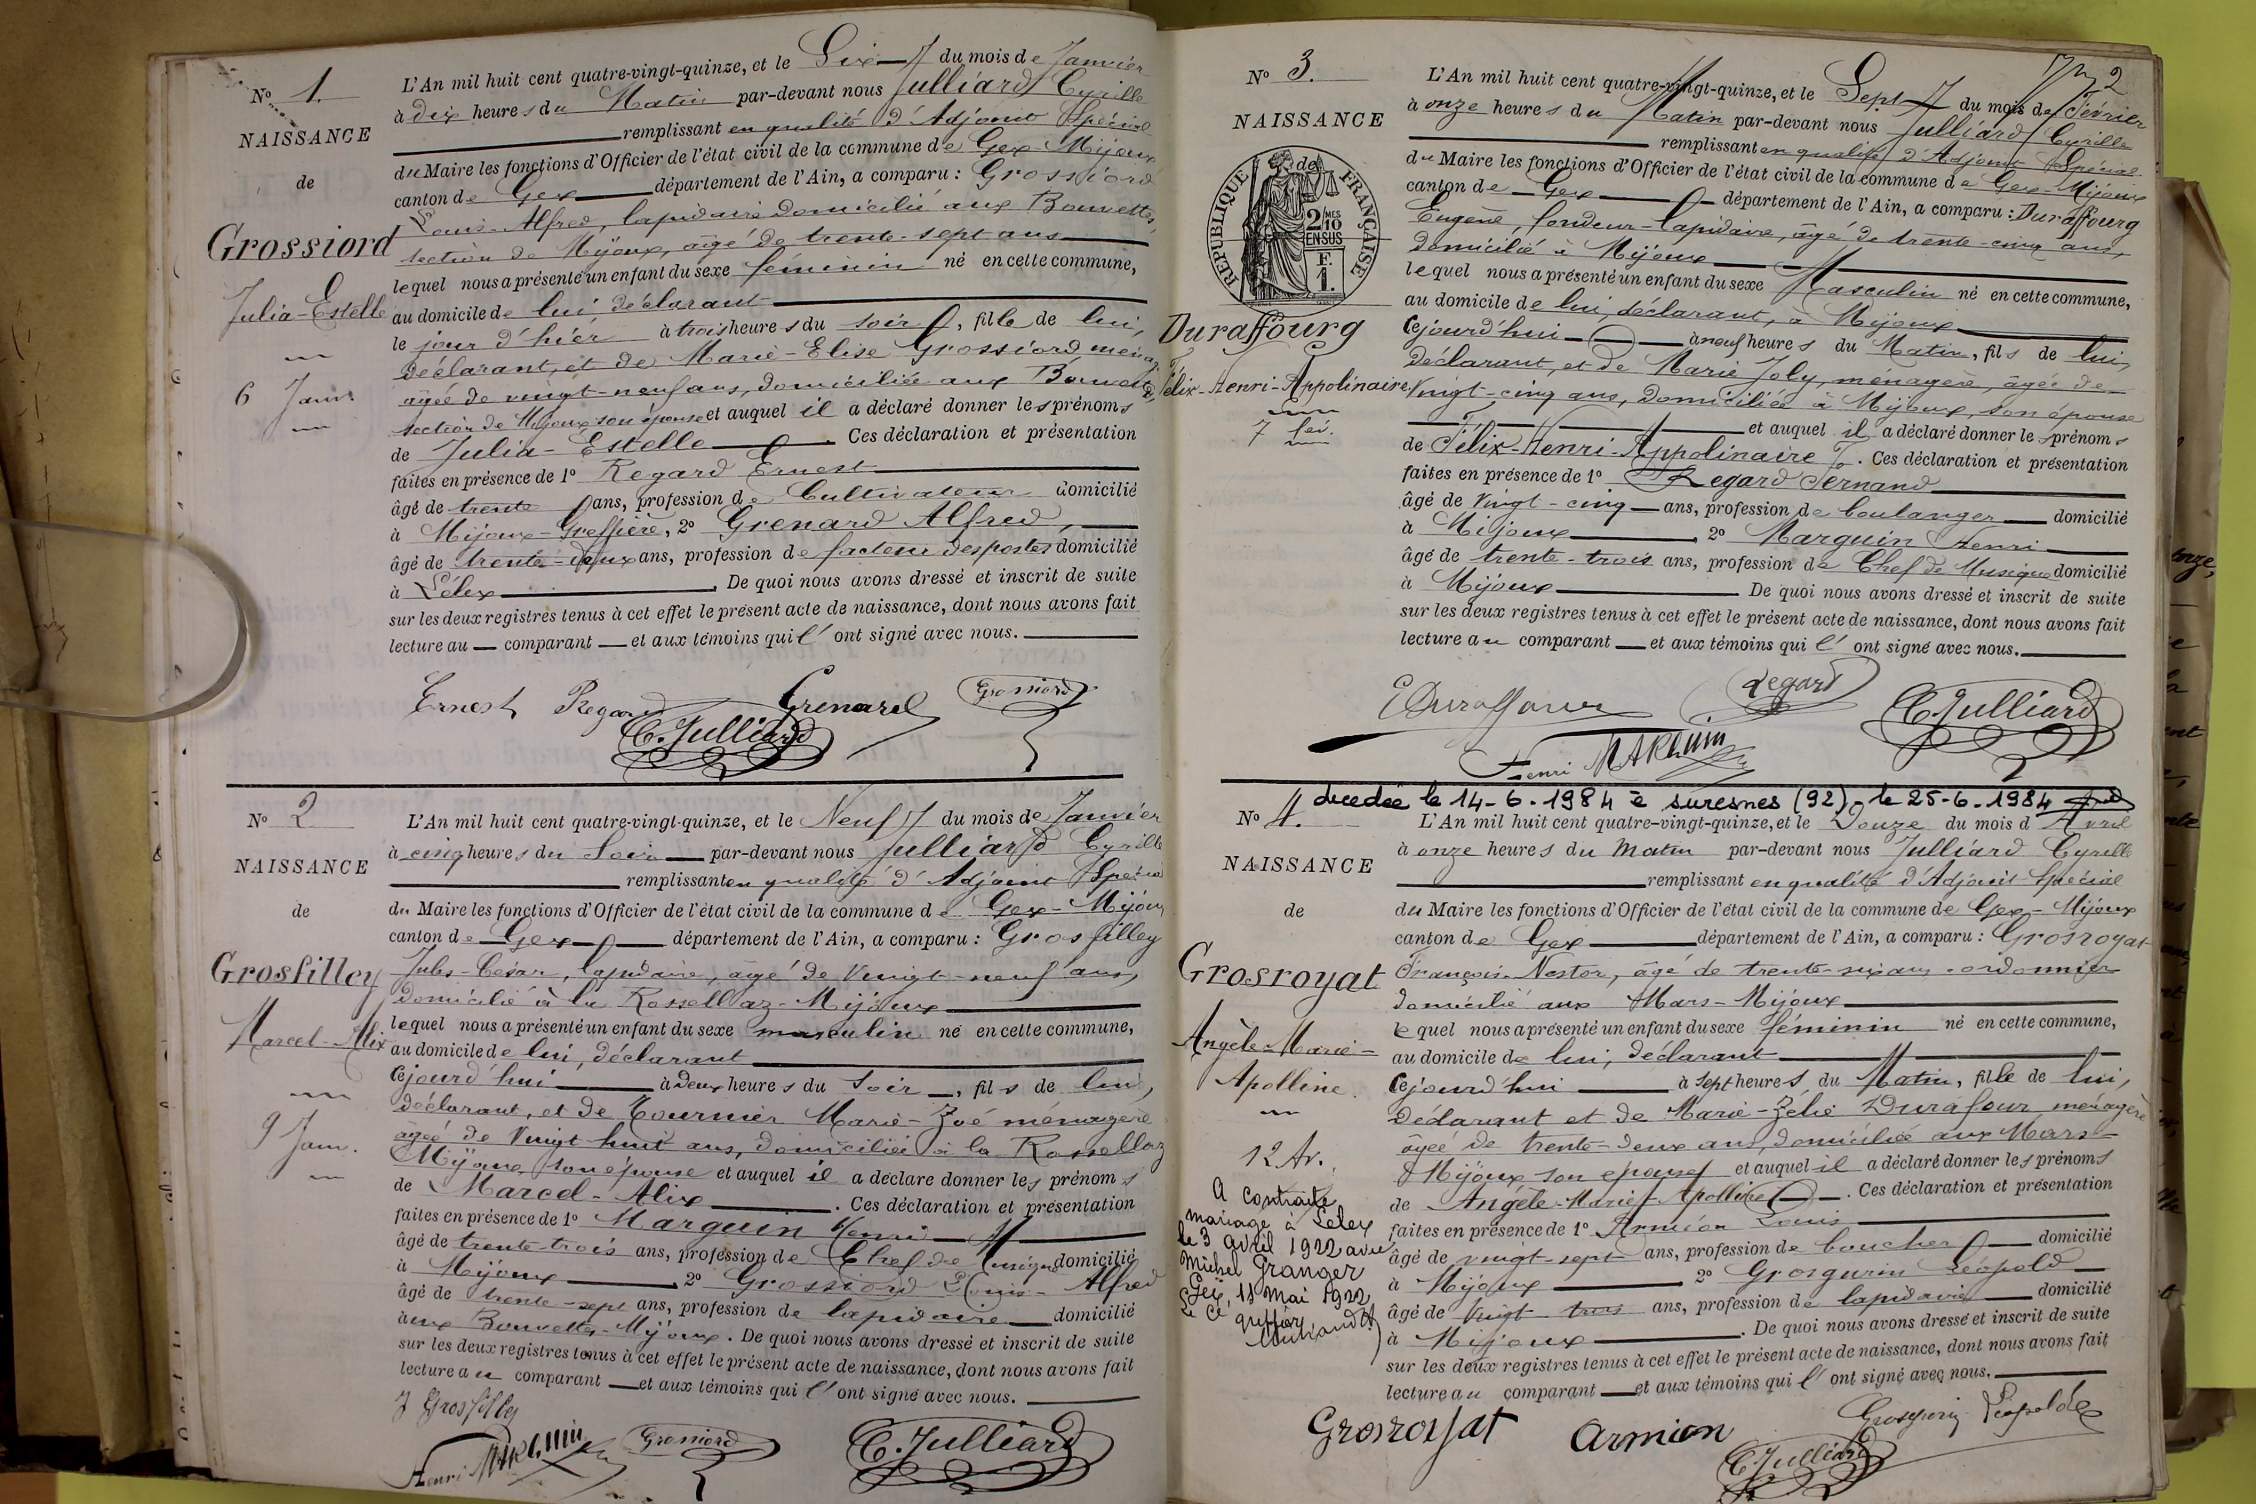 N° 1.
NAISSANCE
de
Grossiord
Julia-Estelle
6 Janv.
L'An mil huit cent quatre-vingt-quinze, et le Six du mois de Janvier
à dix heures du Matin par-devant nous Julliard Cyrille
remplissant en qualité d'Adjoint Spécial
du Maire les fonctions d'Officier de l'état civil de la commune de Gex-Mijoux
canton de Gex département de l'Ain, a comparu : Grossiord
Louis-Alfred, lapidaire domicilié aux Bouvettes,
section de Mijoux, âgé de trente-sept ans
lequel nous a présenté un enfant du sexe féminin né en cette commune,
au domicile de lui, déclarant
le jour d'hier à trois heures du soir, fille de lui,
déclarant, et de Marie-Elise Grossiord, ménag
âgée de vingt-neuf ans, domiciliée aux Bouvettes,
section de Mijoux, son épouse et auquel il a déclaré donner les prénoms
de Julia-Estelle Ces déclaration et présentation
faites en présence de 1° Regard Ernest
âgé de trente ans, profession de Cultivateur domicilié
à Mijoux-Greffière, 2° Grenard Alfred,
âgé de trente-deux ans, profession de facteur des postes domicilié
à Lélex. De quoi nous avons dressé et inscrit de suite
sur les deux registres tenus à cet effet le présent acte de naissance, dont nous avons fait
lecture au comparant et aux témoins qui l'ont signé avec nous.
Ernest Regard Grenard Grossiord
C. Julliard
N° 2
NAISSANCE
de
Grosfilley
Marcel-Alix
9 Janv.
L'An mil huit cent quatre-vingt-quinze, et le Neuf du mois de Janvier
à cinq heures du Soir par-devant nous Julliard Cyrille
remplissant en qualité d'Adjoint Spécial
du Maire les fonctions d'Officier de l'état civil de la commune de Gex-Mijoux
canton de Gex département de l'Ain, a comparu : Grosfilley
Jules-César, lapidaire, âgé de Vingt-neuf ans,
domicilié à la Rossellaz-Mijoux
lequel nous a présenté un enfant du sexe masculin né en cette commune,
au domicile de lui, déclarant
cejourd'hui à deux heures du soir, fils de lui,
déclarant, et de Tournier Marie-Zoé ménagère
âgée de Vingt huit ans, domiciliée à la Rossellaz
Mijoux, son épouse et auquel il a déclaré donner les prénoms
de Marcel-Alix. Ces déclaration et présentation
faites en présence de 1° Marguin Henri
âgé de trente-trois ans, profession de Chef de Musique domicilié
à Mijoux 2° Grossiord Louis-Alfred
âgé de trente-sept ans, profession de lapidaire domicilié
aux Bouvettes-Mijoux. De quoi nous avons dressé et inscrit de suite
sur les deux registres tenus à cet effet le présent acte de naissance, dont nous avons fait
lecture au comparant et aux témoins qui l'ont signé avec nous.
J Grosfilley
Henri Marguin Grossiord C. Julliard
2
N° 3.
NAISSANCE
de
RÉPUBLIQUE FRANÇAISE
2 MES 10 EN SUS
F. 1.
Duraffourg
Félix-Henri-Appolinaire
7 fev.
L'An mil huit cent quatre-vingt-quinze, et le Sept du mois de Février
à onze heures du Matin par-devant nous Julliard Cyrille
remplissant en qualité d'Adjoint Spécial
du Maire les fonctions d'Officier de l'état civil de la commune de Gex-Mijoux
canton de Gex département de l'Ain, a comparu : Duraffourg
Eugène, fondeur-lapidaire, âgé de trente-cinq ans,
domicilié à Mijoux
lequel nous a présenté un enfant du sexe Masculin né en cette commune,
au domicile de lui, déclarant, à Mijoux
cejourd'hui à neuf heures du Matin, fils de lui,
déclarant, et de Marie Joly, ménagère, âgée de
Vingt-cinq ans, domiciliée à Mijoux, son épouse
et auquel il a déclaré donner les prénoms
de Félix-Henri-Appolinaire. Ces déclaration et présentation
faites en présence de 1° Regard Fernand
âgé de Vingt-cinq ans, profession de boulanger domicilié
à Mijoux 2° Marguin Henri
âgé de trente-trois ans, profession de Chef de Musique domicilié
à Mijoux De quoi nous avons dressé et inscrit de suite
sur les deux registres tenus à cet effet le présent acte de naissance, dont nous avons fait
lecture au comparant et aux témoins qui l'ont signé avec nous.
E Duraffourg Regard C. Julliard
Henri Marguin
décédée le 14-6-1984 à suresnes (92), le 25-6-1984
N° 4.
NAISSANCE
de
Grosroyat
Angèle-Marie-
Apolline.
12 Av.
A contracté
mariage à Lelex
le 3 avril 1922 avec
Michel Granger
Gex, 11 Mai 1922
Le Cⁱˢ greffier
L'An mil huit cent quatre-vingt-quinze, et le Douze du mois d Avril
à onze heures du matin par-devant nous Julliard Cyrille
remplissant en qualité d'Adjoint Spécial
du Maire les fonctions d'Officier de l'état civil de la commune de Gex-Mijoux
canton de Gex département de l'Ain, a comparu : Grosroyat
François-Nestor, âgé de trente-six ans, cordonnier
domicilié aux Mars-Mijoux
lequel nous a présenté un enfant du sexe féminin né en cette commune,
au domicile de lui, déclarant
cejourd'hui à sept heures du Matin, fille de lui,
déclarant et de Marie-Zélie Durafour ménagère
âgée de trente-deux ans, domiciliée aux Mars-
Mijoux son épouse et auquel il a déclaré donner les prénoms
de Angèle-Marie-Apolline. Ces déclaration et présentation
faites en présence de 1° Armion Louis
âgé de vingt-sept ans, profession de boucher domicilié
à Mijoux 2° Grosgurin Léopold
âgé de Vingt trois ans, profession de lapidaire domicilié
à Mijoux. De quoi nous avons dressé et inscrit de suite
sur les deux registres tenus à cet effet le présent acte de naissance, dont nous avons fait
lecture au comparant et aux témoins qui l'ont signé avec nous.
Grosroyat Armion Grosgurin Léopold
C. Julliard